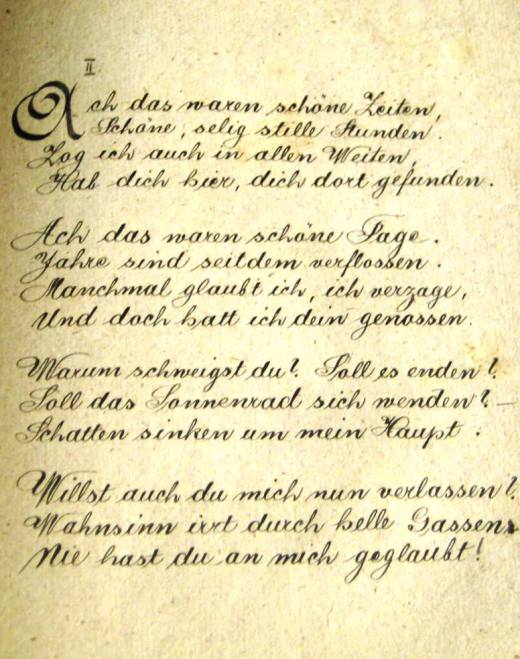 II
Ach das waren schöne Zeiten,
Schöne, selig stille Stunden.
Zog ich auch in allen Weiten,
Hab dich hier, dich dort gefunden.
Ach das waren schöne Tage.
Jahre sind seitdem verflossen.
Manchmal glaubt ich, ich verzage,
Und doch hatt ich dein genossen.
Warum schweigst du? Soll es enden?
Soll das Sonnenrad sich wenden? –
Schatten sinken um mein Haupt.
Willst auch du mich nun verlassen?
Wahnsinn irrt durch helle Gassen:
Nie hast du an mich geglaubt!